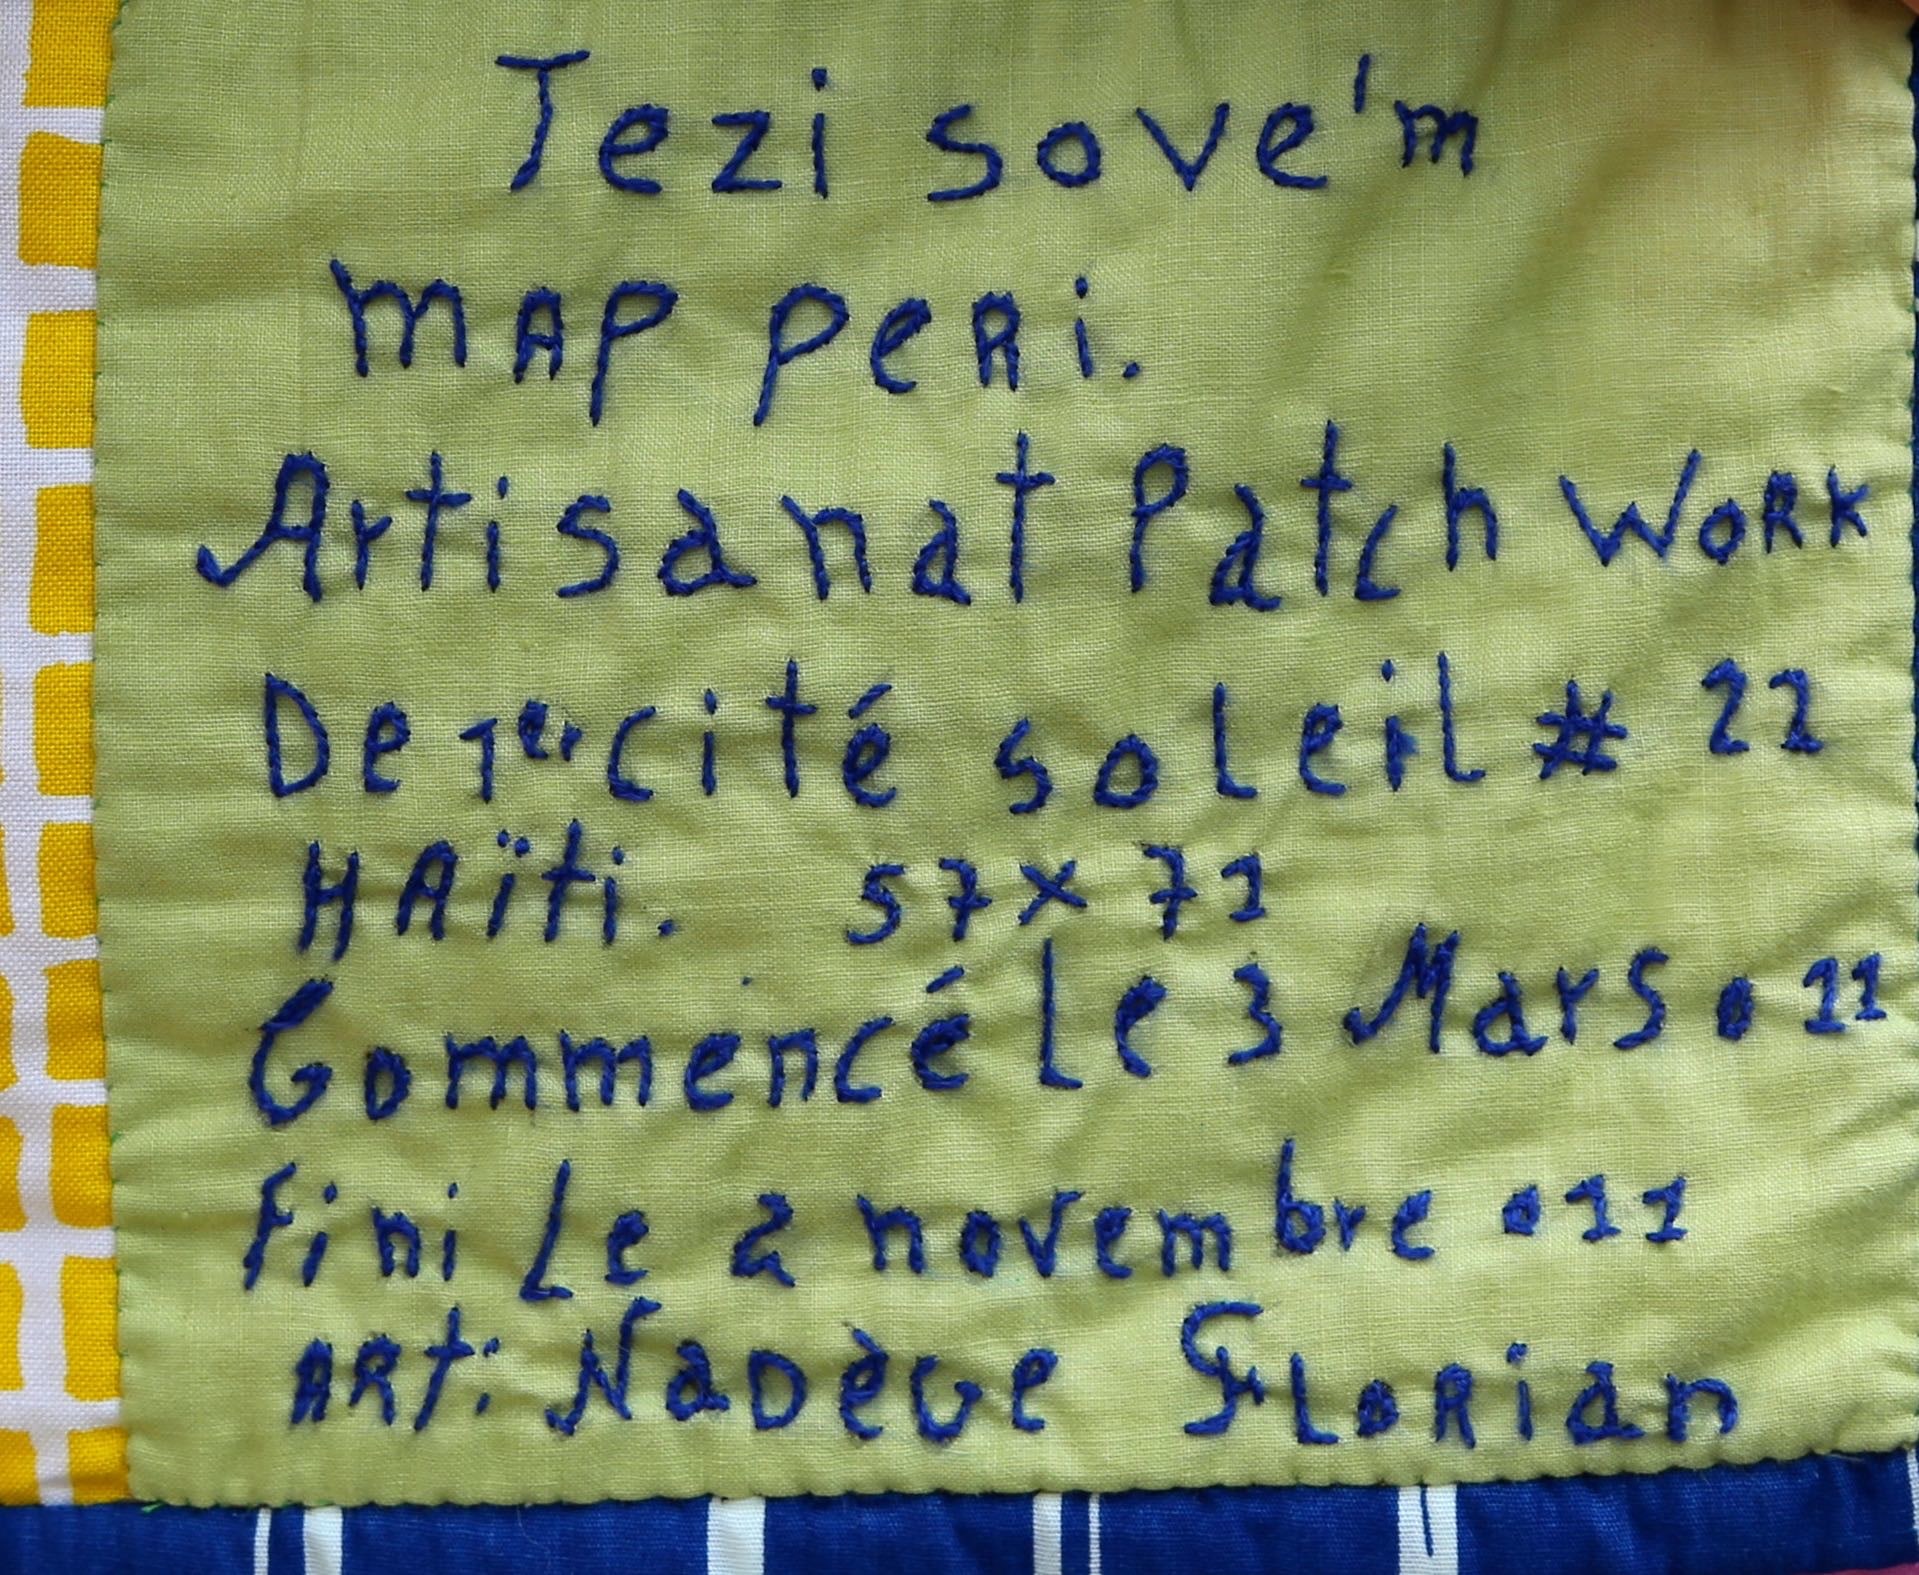 Jezi sove'm
map peri.
Artisanat Patch Work
De 1er cité soleil # 22
Haïti. 57 x 71
Commencé le 3 Mars 011
Fini Le 2 novembre 011
Art: Nadège Florian